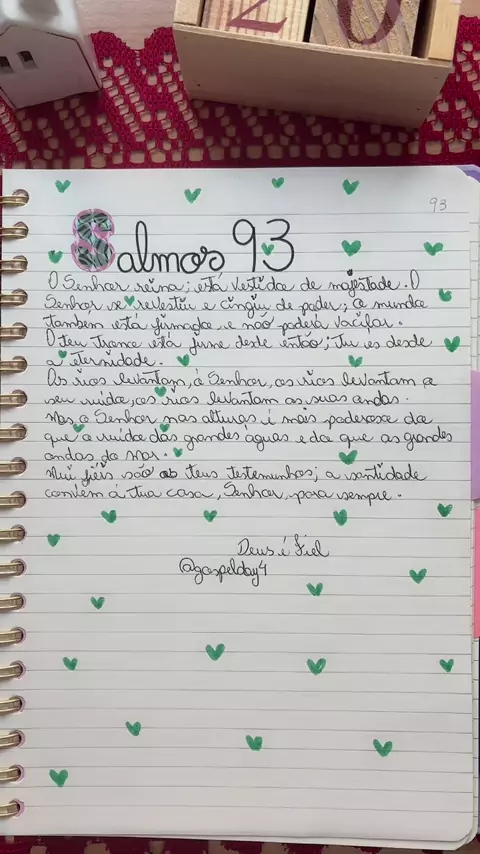 20
93
Salmos 93
O Senhor reina; está vestido de majestade. O
Senhor se revestiu e cingiu de poder; o mundo
também está firmado e não poderá vacilar.
O teu trono está firme desde então; tu és desde
a eternidade.
Os rios levantam, ó Senhor, os rios levantam o
seu ruído, os rios levantam as suas ondas.
Mas o Senhor nas alturas é mais poderoso do
que o ruído das grandes águas e do que as grandes
ondas do mar.
Mui fiéis são os teus testemunhos; a santidade
convém à tua casa, Senhor, para sempre.
Deus é Fiel
@gospelday4